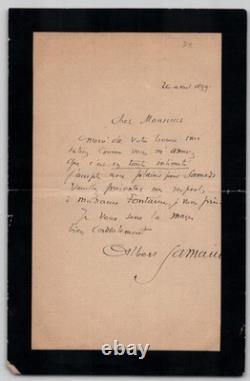 22 avril 1899
Cher Monsieur
Merci de votre bonne
comme vous m'
que c'est en toute intimité
j'accepte avec plaisir pour Samedi
Veuillez présenter mes respects
à Madame Fontaine, je vous prie
Je vous serre la main
bien cordialement
Albert Samain
© thebookee.net